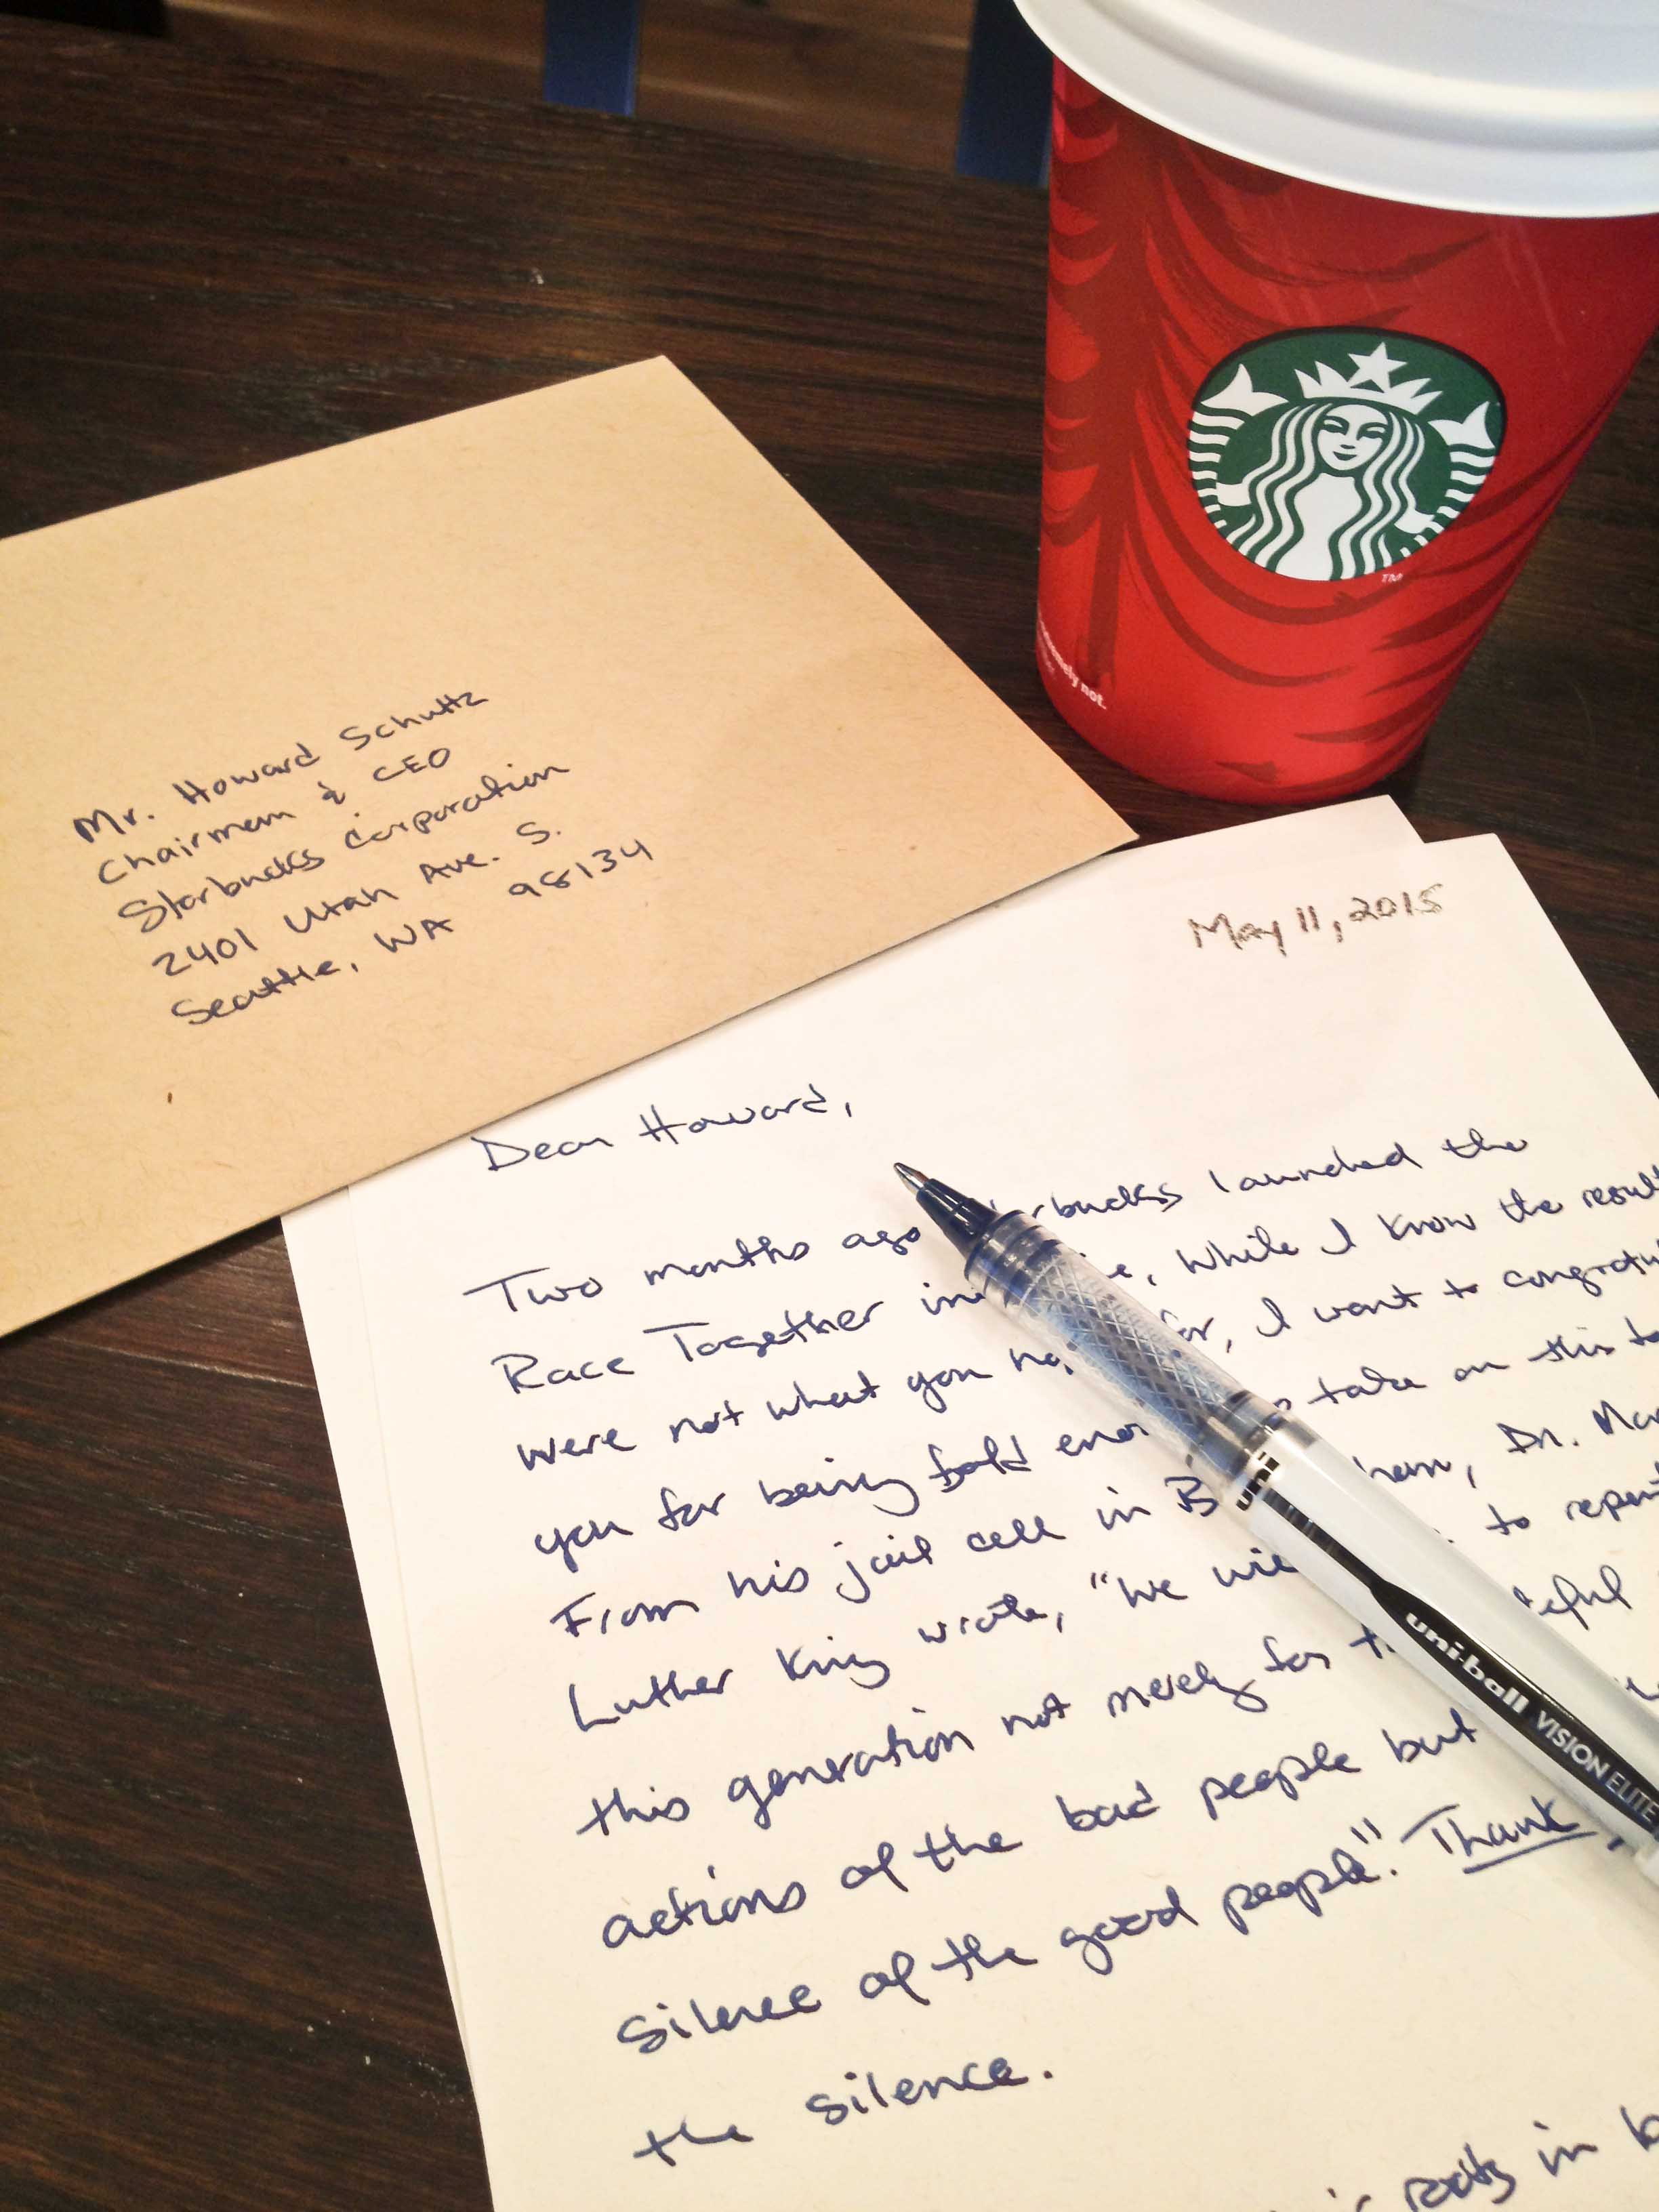 Mr. Howard Schultz
Chairman & CEO
Starbucks Corporation
2401 Utah Ave. S.
Seattle, WA 98134
TM
not.
May 11, 2015
Dear Howard,
Two months ago launched the
Race Together While I know the
were not what you I want to
you for being bold take on this
From his jail cell in Dr.
Luther King wrote, "We to
this generation not merely for
actions of the bad people but
silence of the good people". Thank
the silence.
in
uni
uni-ball VISION ELITE